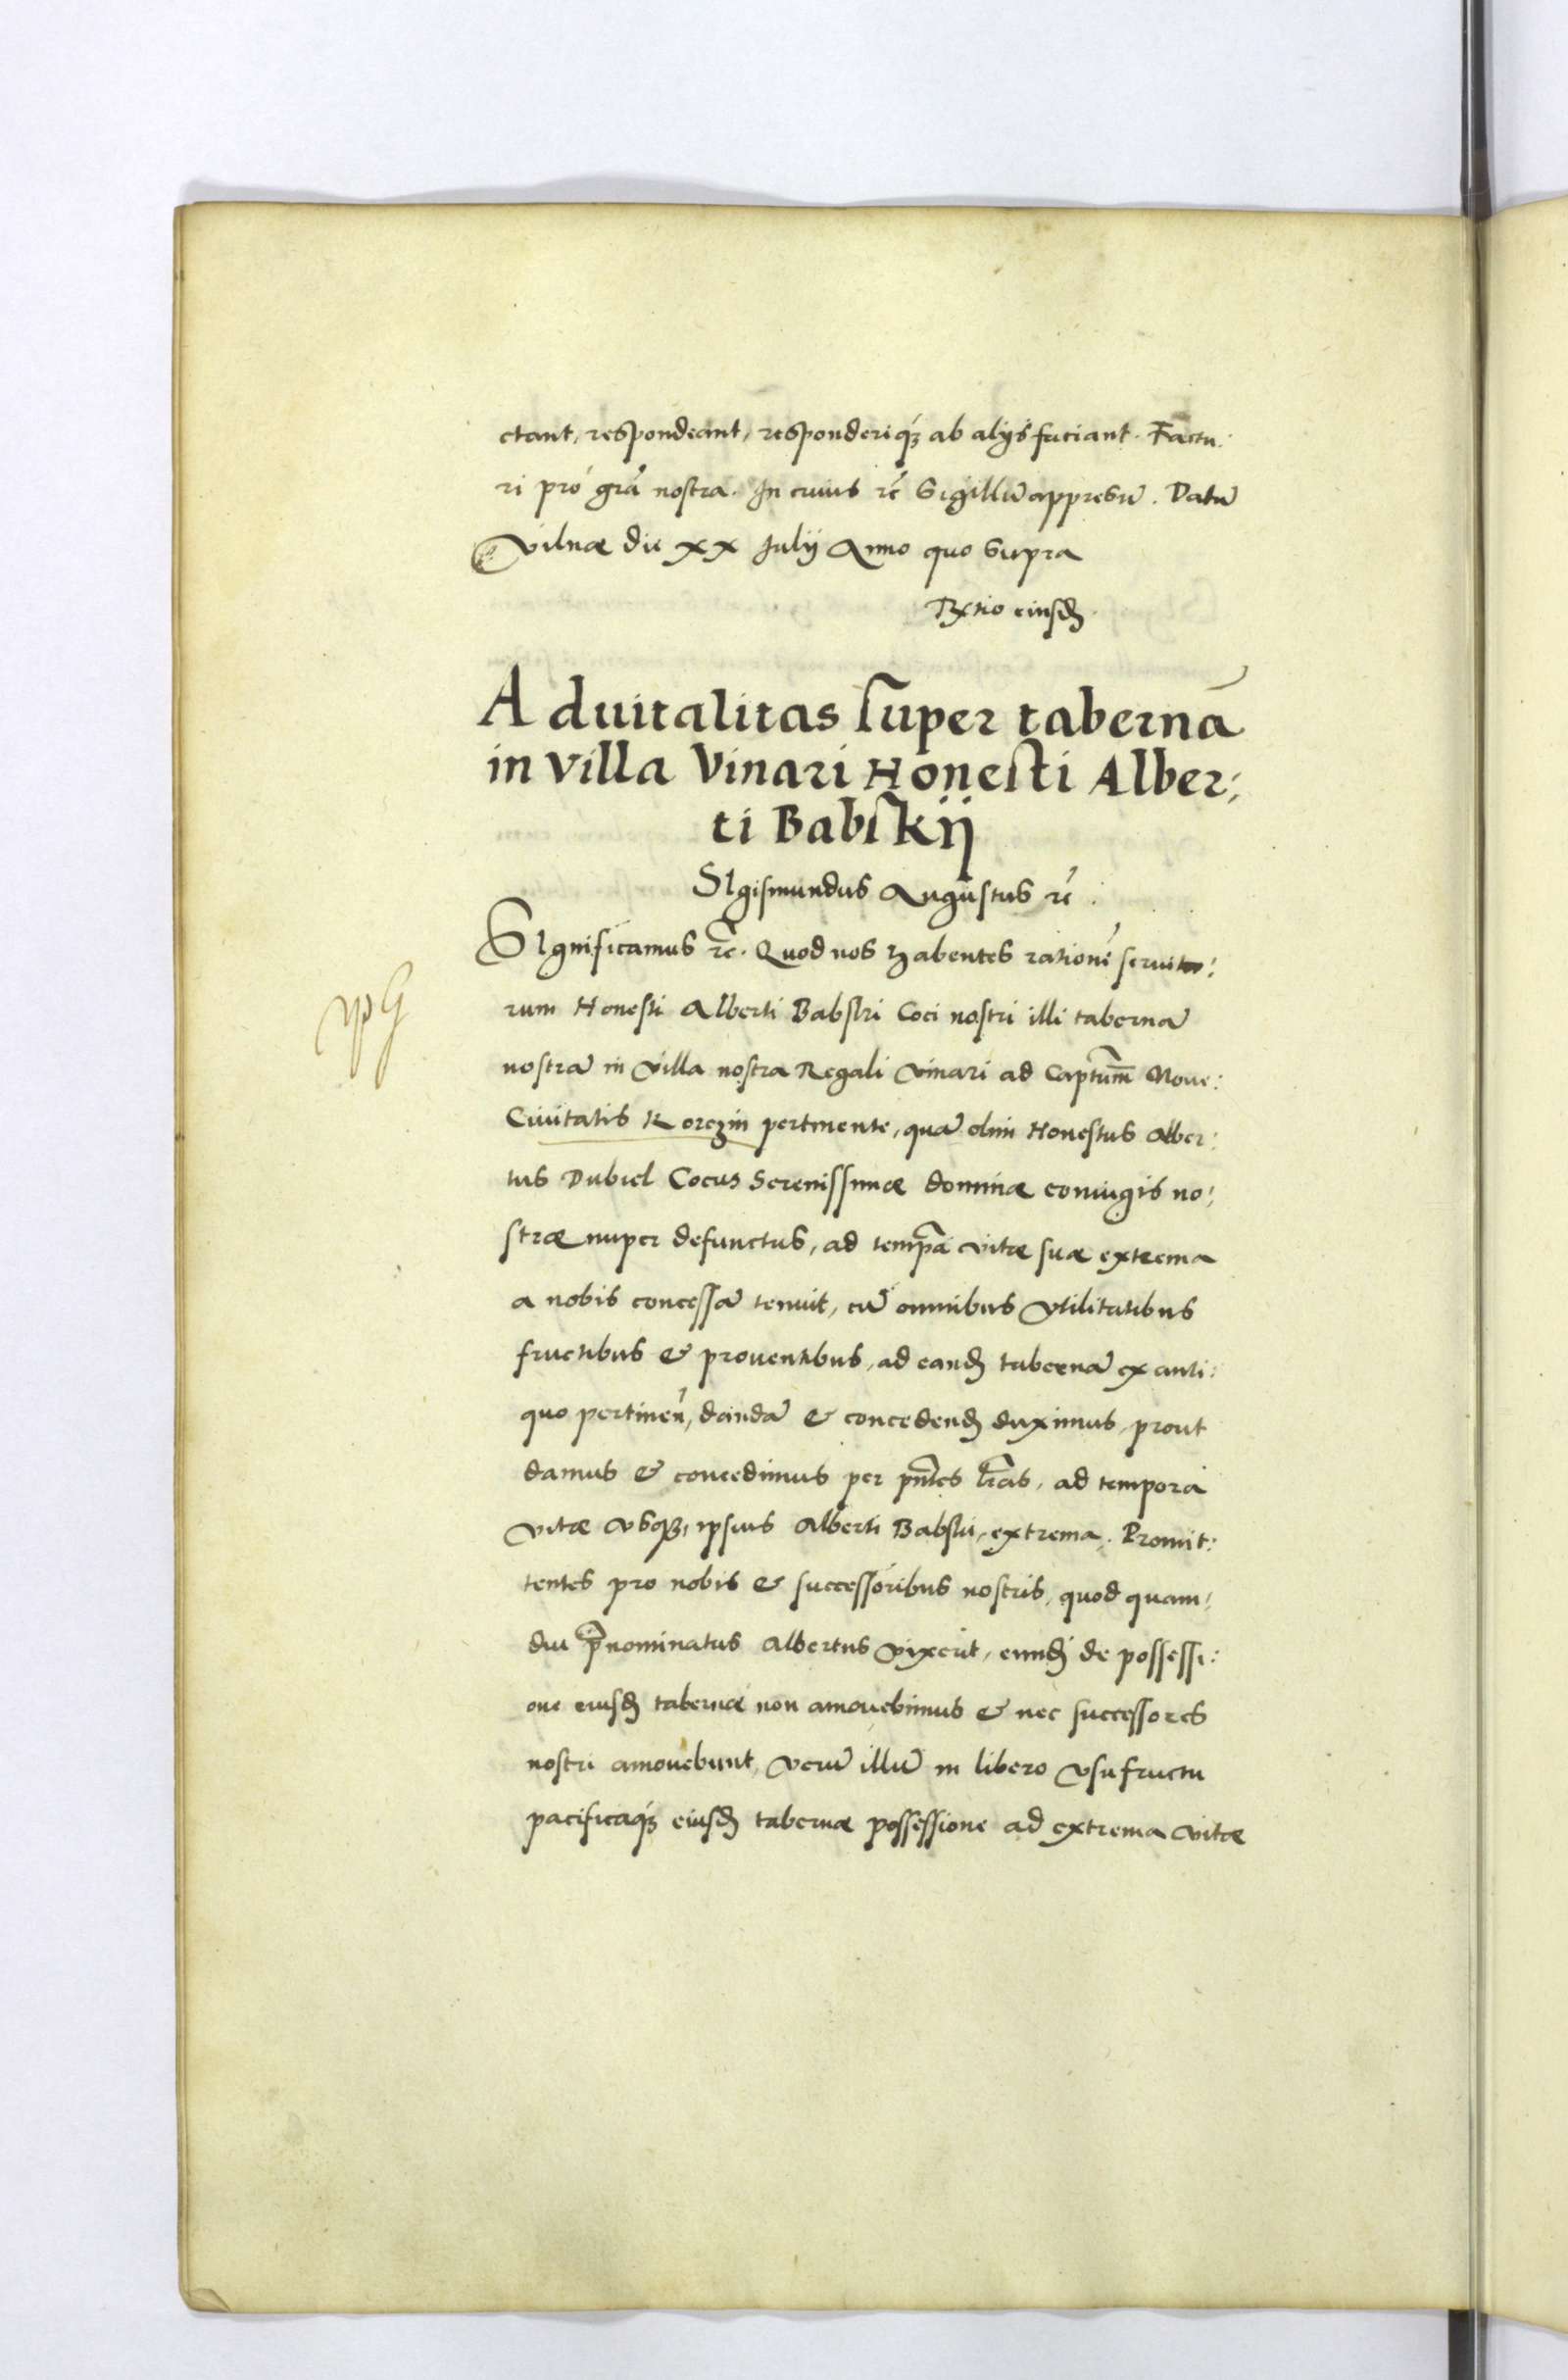 ctant, respondeant, responderiq́ꝫ ab alijs faciant. Factu:
ri pro grã nostra. In cuius rẽ Sigillũ appresũ. Datũ
Vilnæ die XX Julij Anno quo supra
eiusdꝫ.
Aduitalitas super tabernã
in villa Vinari Honesti Alber:
ti Babskij
SIgismundus Augustus rẽ.
SIgnificamus rẽ. Quod nos habentes rationẽ seruito:
rum Honesti Alberti Babski Coci nostri illi tabernã
nostrã in villa nostra Regali Vinari ad Capt̃um Noue:
Ciuitatis Korczin pertinente, quã olim Honestus Alber:
tus Dubiel Cocus Serenissimæ dominæ coniugis no:
stræ nuper defunctus, ad temp̃a vitæ suæ extrema
a nobis concessã tenuit, cũ omnibus vtilitatibus
fructibus & prouentibus, ad eandꝫ tabernã ex anti:
quo pertineñ, dandã & concedendꝫ duximus, prout
damus & concedimus per pñtes l̃ras, ad tempora
vitæ vsqꝫ, ipsius Alberti Babski, extrema. Promit:
tentes pro nobis & successoribus nostris, quod quam:
diu p̃nominatus Albertus vixerit, eundꝫ de possessi:
one eiusdꝫ tabernæ non amouebimus & nec successores
nostri amouebunt, verũ illũ in libero vsufructu
pacificaq́ꝫ eiusdꝫ tabernæ possessione ad extrema vitæ